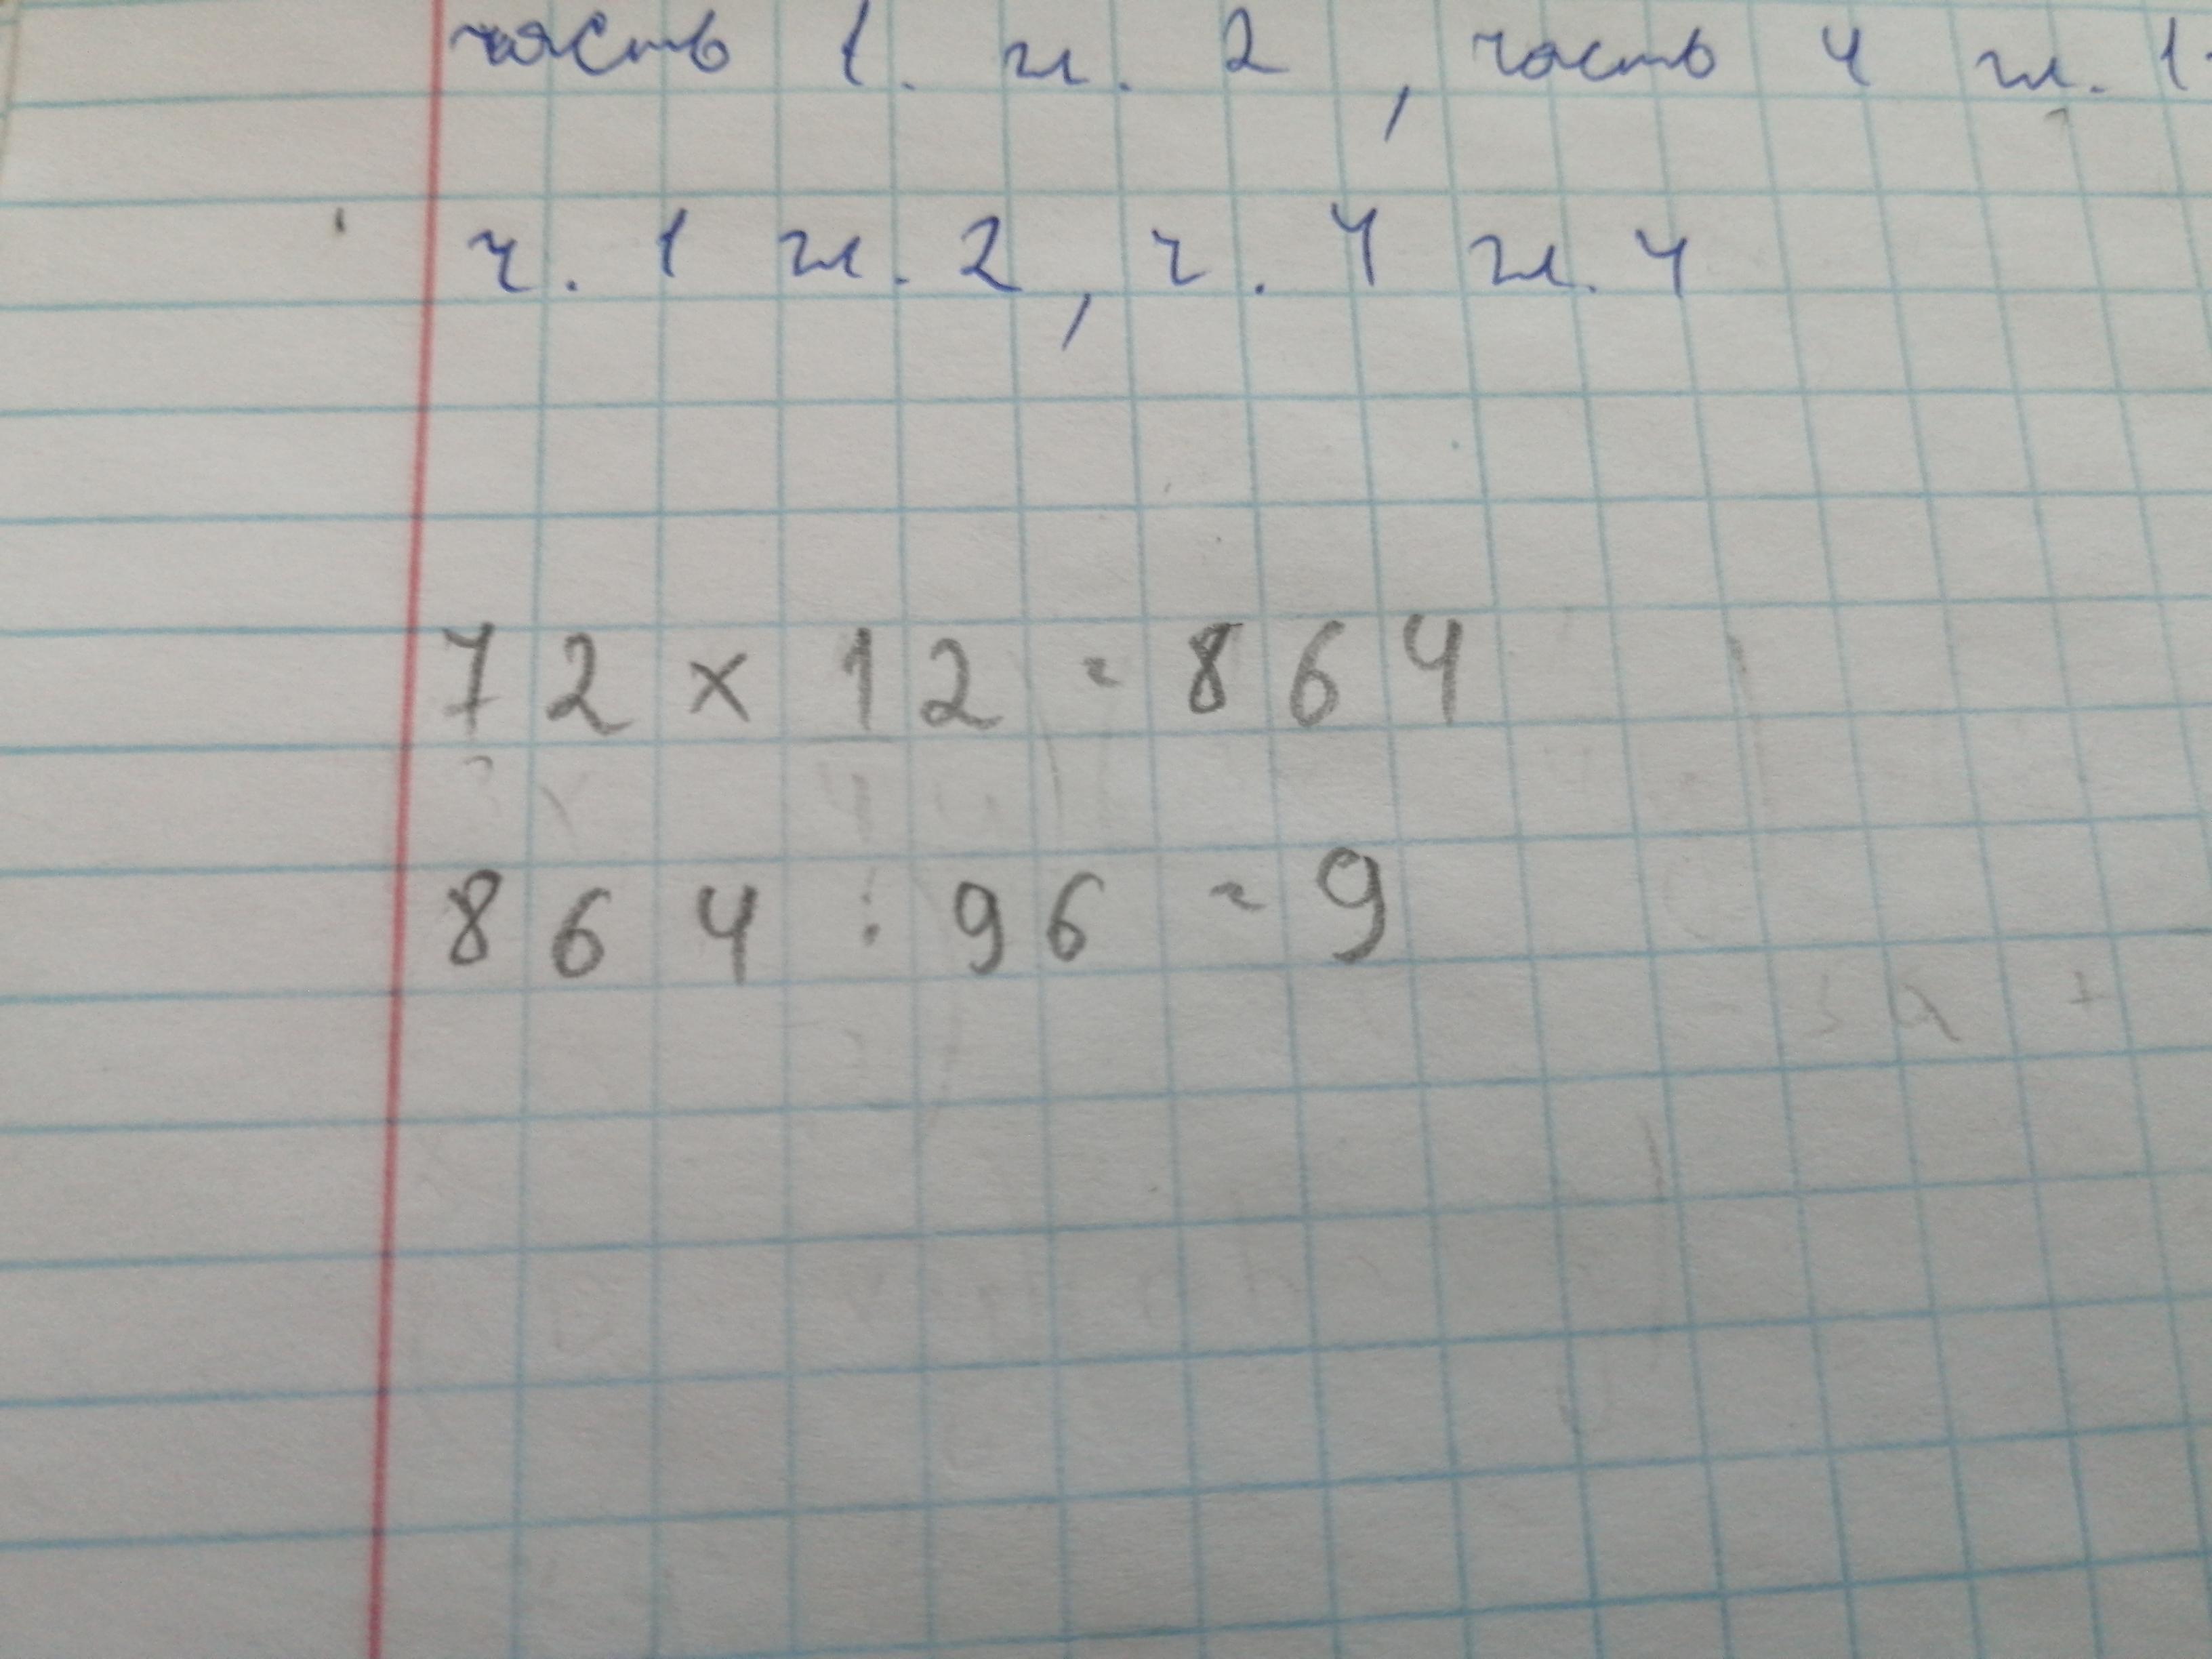 часть 1. гл. 2, часть 4 гл. 1
ч. 1 гл. 2, ч. 4 гл. 4
72 x 12 = 864
864 : 96 = 9